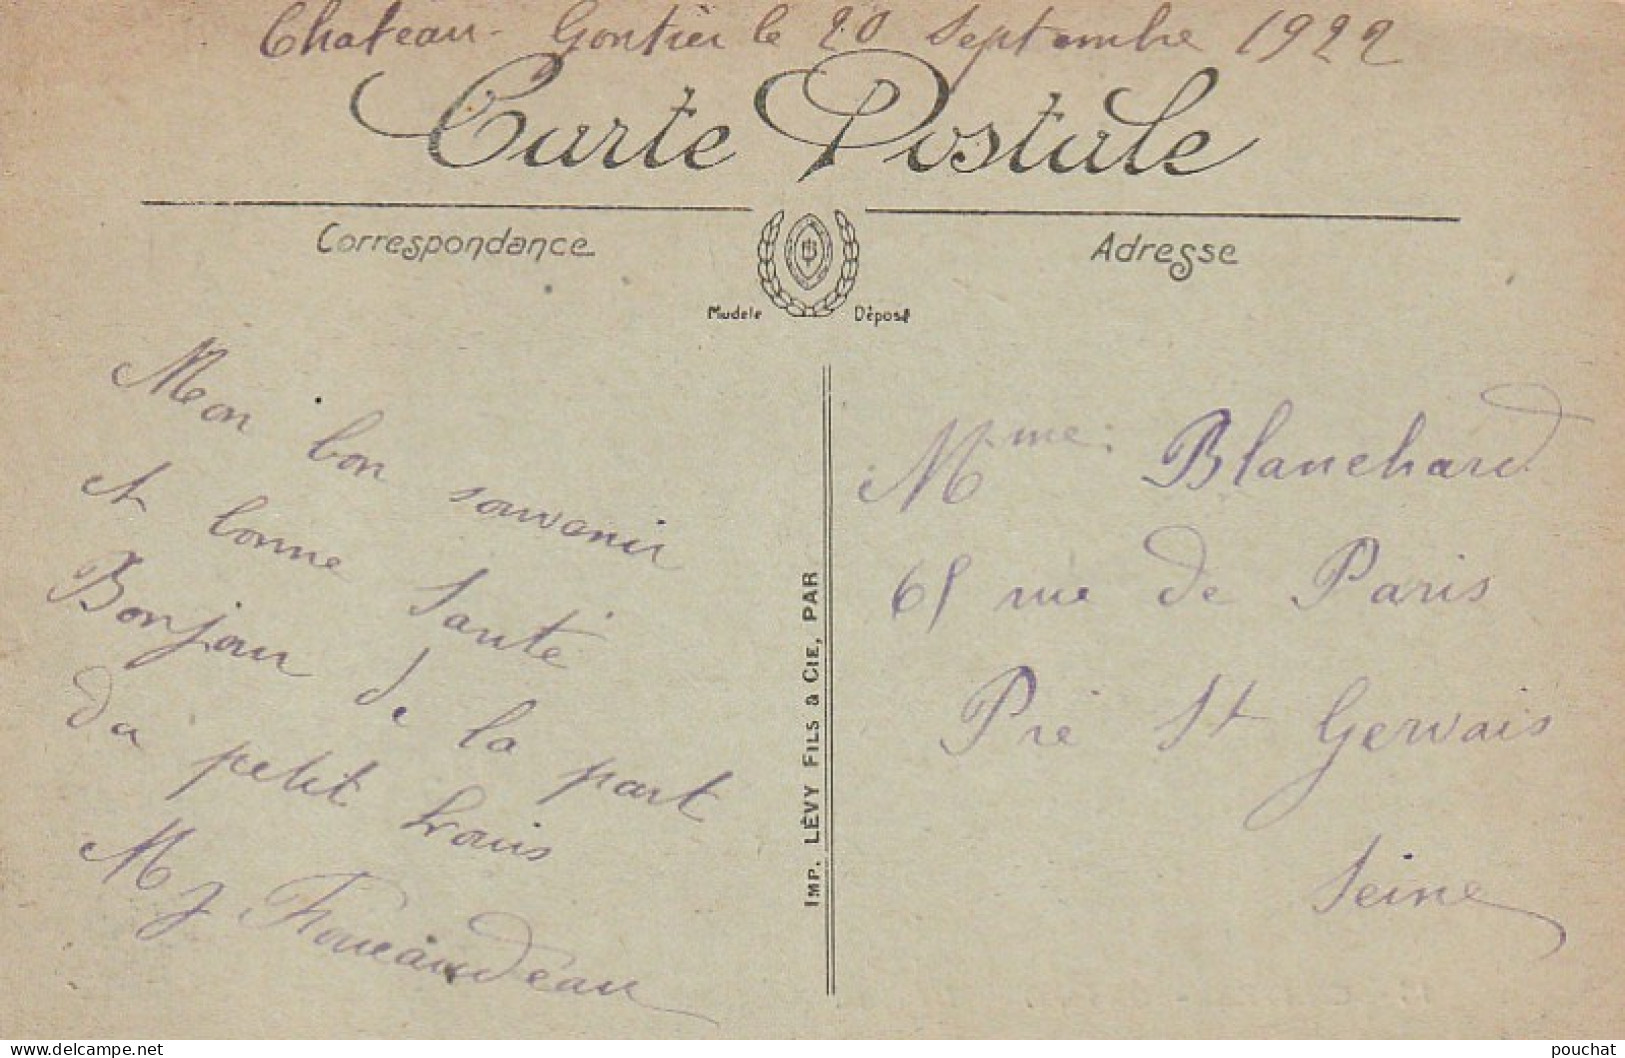 Chateau-Gontier le 20 Septembre 1922
Carte Postale
Correspondance
Adresse
Modele Déposé
Mon bon souvenir
et bonne Santé
Bonjour de la part
du petit Louis
M J
IMP. LÉVY FILS & CIE, PAR
Mme Blanchard
65 rue de Paris
Pré St Gervais
Seine
delcampe.net
pouchat